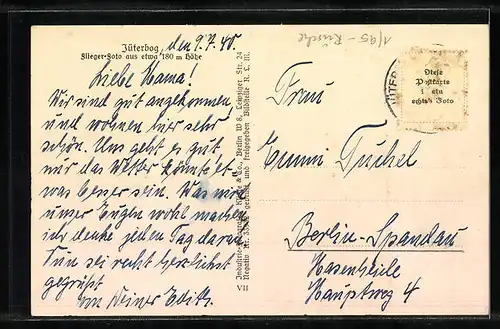 Jüterbog, den 9.7.40.
Flieger-Foto aus etwa 180 m Höhe
Liebe Mama!
Wir sind gut angekommen
und wohnen hier sehr
schön. Uns geht es gut
nur das Wetter könnte et-
was besser sein. Was wird
unser Eugen wohl machen
ich denke jeden Tag daran
Nun sei recht herzlichst
gegrüßt
von Deiner Edith.
Industrie-Fotografen Klinke & Co., Berlin W 8, Leipziger Str. 24
gefertigt und freigegeben
VII
1/95
Diese
Postkarte
ist ein
echtes Foto
JÜTER
Frau
Emmi Tuchel
Berlin-Spandau
Hasenheide
Hauptweg 4